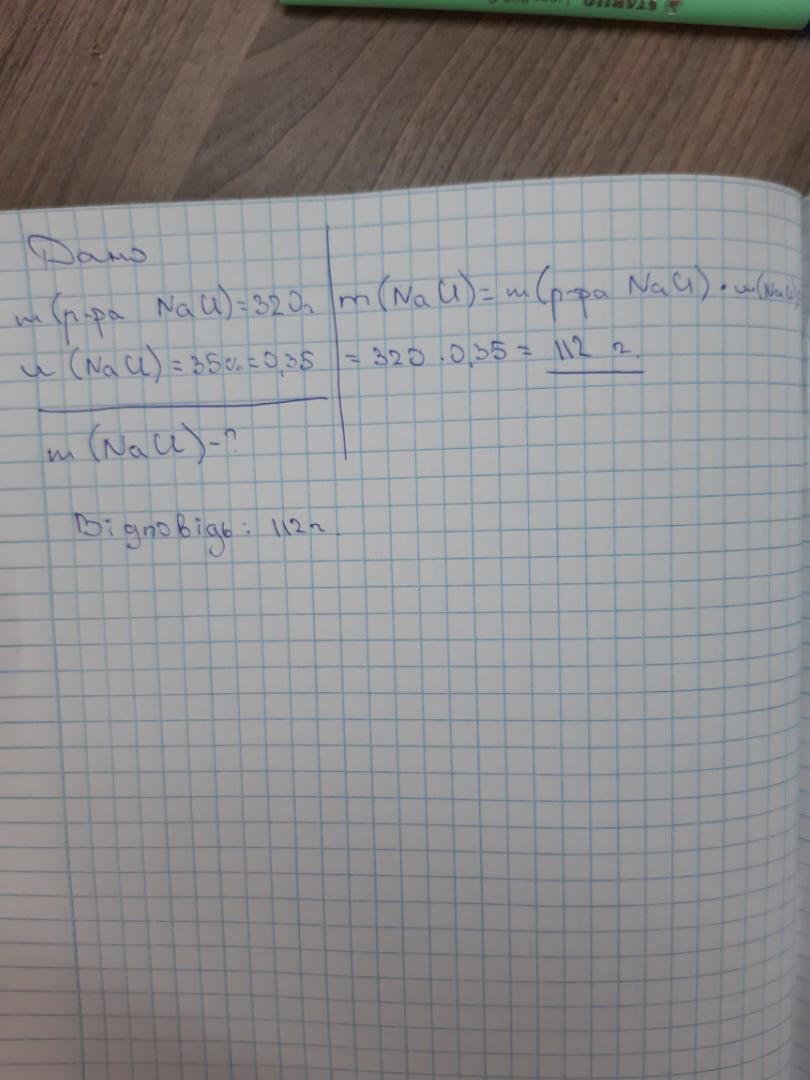 STABILO
Дано
m (р-ра NaCl) = 320г
w (NaCl) = 35% = 0,35
m (NaCl) - ?
m (NaCl) = m (р-ра NaCl) · w (NaCl)
= 320 . 0,35 = 112 г.
Відповідь: 112г.